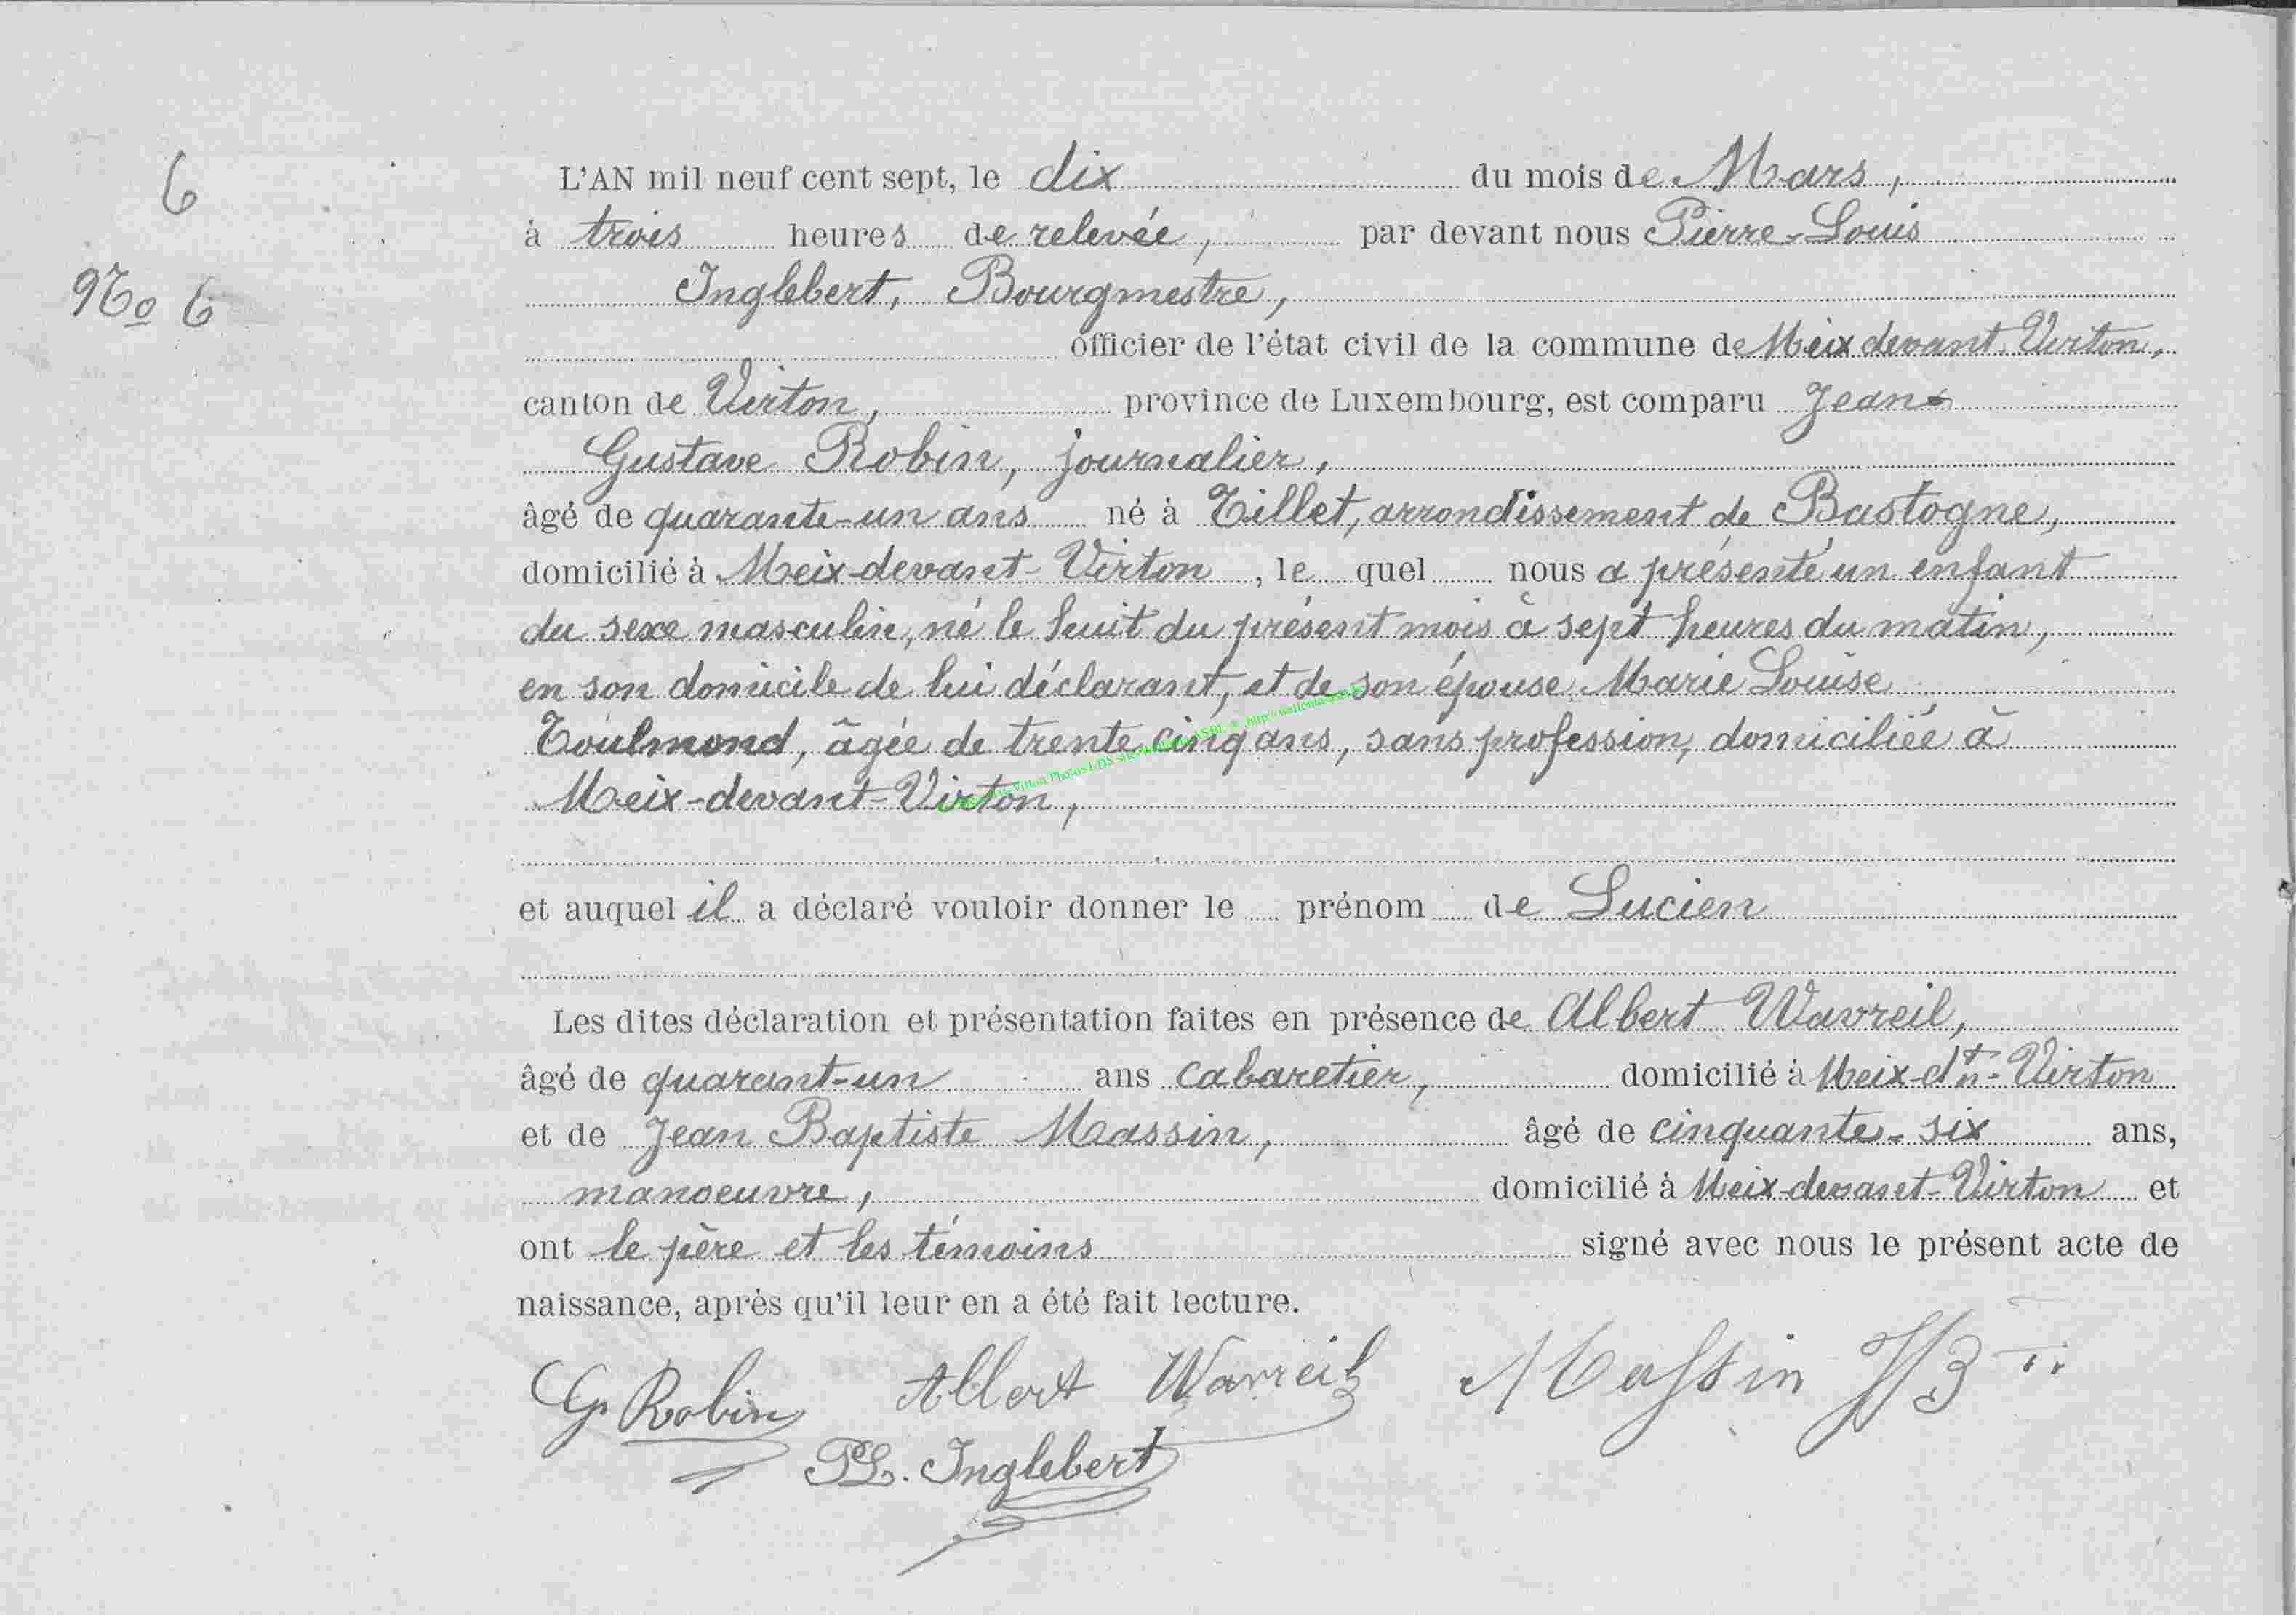 6
No 6
L'AN mil neuf cent sept, le dix du mois de Mars,
à trois heures de relevée, par devant nous Pierre-Louis
Inglebert, Bourgmestre,
officier de l'état civil de la commune de Meix devant Virton,
canton de Virton, province de Luxembourg, est comparu Jean-
Gustave Robin, journalier,
âgé de quarante-un ans né à Tillet, arrondissement de Bastogne,
domicilié à Meix-devant-Virton, le quel nous a présenté un enfant
du sexe masculin, né le huit du présent mois à sept heures du matin,
en son domicile de lui déclarant, et de son épouse Marie Louise
Toulmond, âgée de trente cinq ans, sans profession, domiciliée à
Meix-devant-Virton,
et auquel il a déclaré vouloir donner le prénom de Lucien
Les dites déclaration et présentation faites en présence de Albert Wavreil,
âgé de quarant-un ans cabaretier, domicilié à Meix-dt-Virton
et de Jean Baptiste Massin, âgé de cinquante-six ans,
manoeuvre, domicilié à Meix-devant-Virton et
ont le père et les témoins signé avec nous le présent acte de
naissance, après qu'il leur en a été fait lecture.
G. Robin Albert Wavreil Massin JB
PL. Inglebert